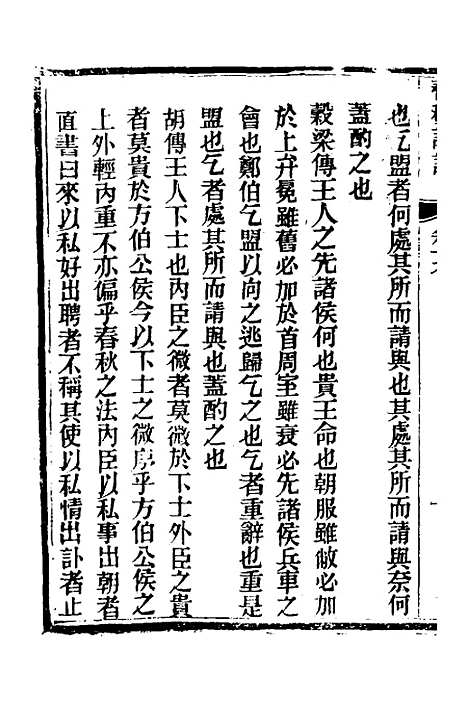 也乞盟者何處其所而請與也其處其所而請與奈何
蓋酌之也
穀梁傳王人之先諸侯何也貴王命也朝服雖敝必加
於上弁冕雖舊必加於首周室雖衰必先諸侯兵車之
會也鄭伯乞盟以向之逃歸乞之也乞者重辭也重是
盟也乞者處其所而請與也蓋酌之也
胡傳王人下士也內臣之微者莫微於下士外臣之貴
者莫貴於方伯公侯今以下士之微序乎方伯公侯之
上外輕內重不亦偏乎春秋之法內臣以私事出朝者
直書曰來以私好出聘者不稱其使以私情出訃者止